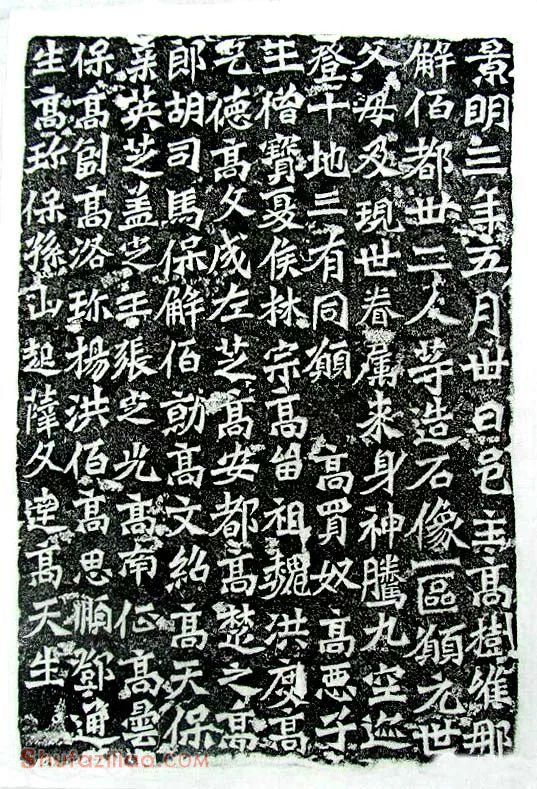 景明三年五月卅日邑主高樹維那
解佰都卅二人等造石像一區願元世
父母及現世眷属来身神騰九空迹
登十地三有同願 高買奴 高悪子
王僧寶夏侯林宗高留祖魏洪度高
乞德高文成左芝高安都高楚之高
郎胡司馬保解佰勍高文紹高天保
英芝盖之王張之光高南仁高曇
保高創高洛珎楊洪佰高思順鄧通
生高珎保孫山起薛文達高天生
Shufaziliao.com